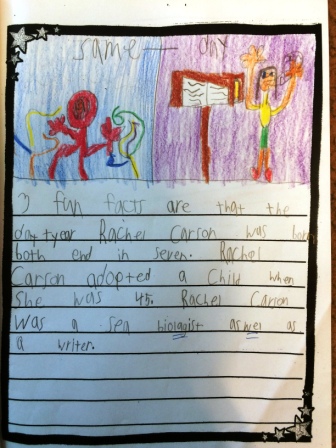 same — day
3 fun facts are that the
day + year Rachel Carson was born
both end in seven. Rachel
Carson adopted a child when
She was 45. Rachel Carson
was a sea bioloagist aswel as
a writer.